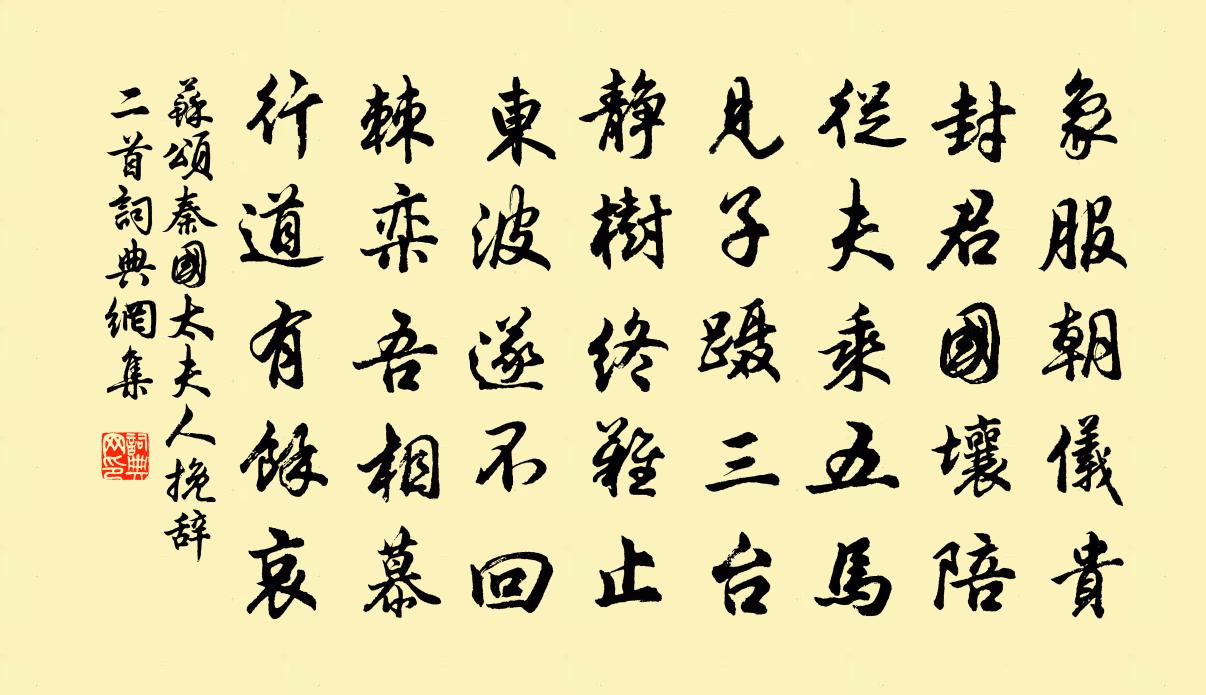 象服朝儀貴
封君國壤陪
從夫乘五馬
見子蹑三台
靜樹終難止
東波遂不回
棘栾吾相慕
行道有餘哀
蘇頌秦國太夫人挽辞
二首詞典網集
詞典网印